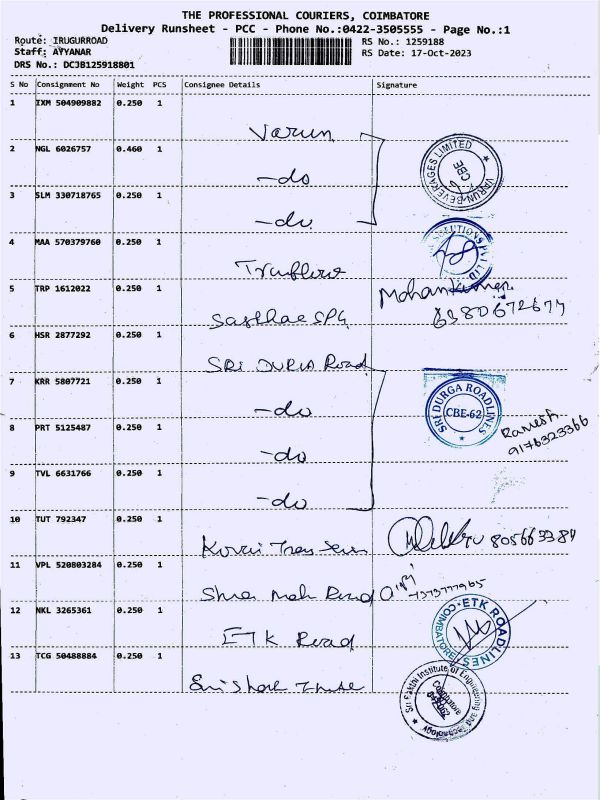 THE PROFESSIONAL COURIERS, COIMBATORE
Delivery Runsheet - PCC - Phone No.:0422-3505555 - Page No.:1
Route: IRUGURROAD
RS No.: 1259188
Staff: AYYANAR
RS Date: 17-Oct-2023
DRS No.: DC3B125918801
S No Consignment No Weight PCS Consignee Details Signature
1 IXM 504909882 0.250 1
Varun
2 NGL 6026757 0.460 1
VARUN BEVERAGES LIMITED
CBE
-do
3 SLM 330718765 0.250 1
-do
4 MAA 570379760 0.250 1
SOLUTIONS PVT LTD
Truflow
5 TRP 1612022 0.250 1
Mohankumar
Sasthae SPG
6 HSR 2877292 0.250 1
SRI DURGA Road
7 KRR 5807721 0.250 1
SRI DURGA ROADLINES
CBE-62
-do
8 PRT 5125487 0.250 1
Ramesh
9176323366
-do
9 TVL 6631766 0.250 1
-do
10 TUT 792347 0.250 1
11 VPL 520803284 0.250 1
7373777965
12 NKL 3265361 0.250 1
ETK ROADLINES
COIMBATORE
ETK Road
13 TCG 50488884 0.250 1
Sri Sakthi Institute of Engineering and Technology
Coimbatore